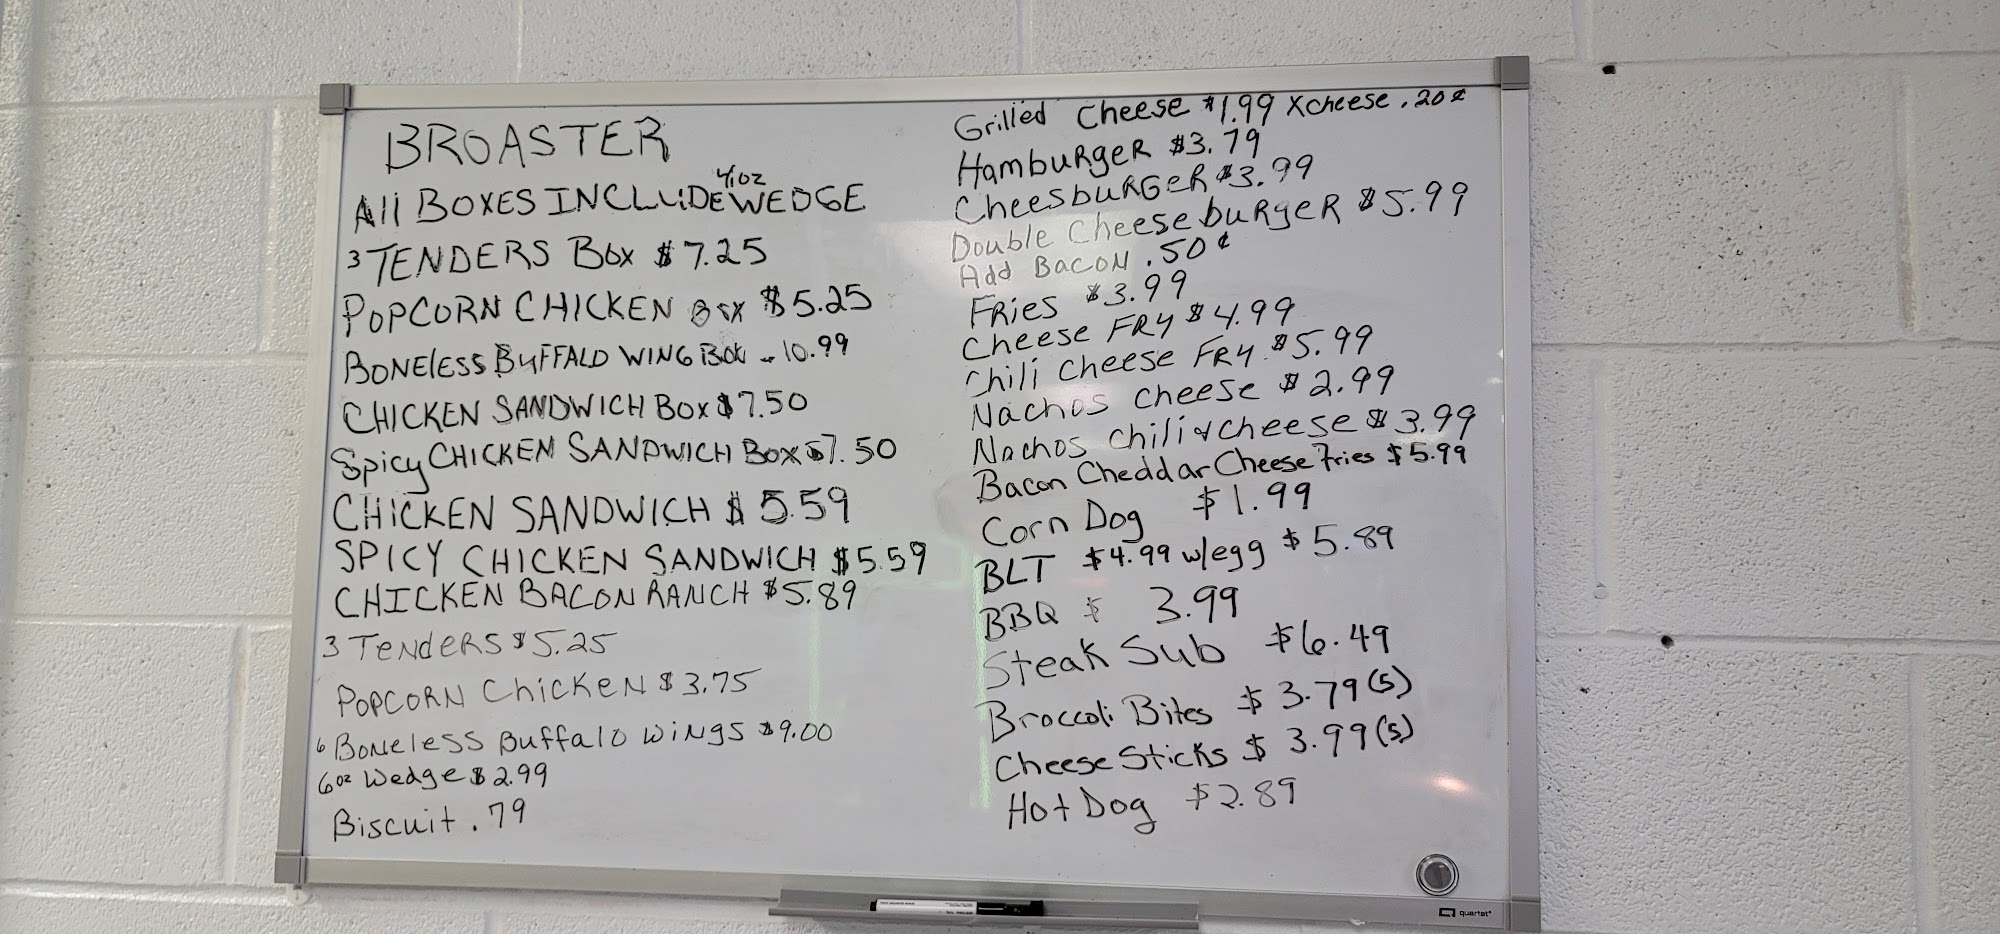 BROASTER
All BOXES INCLUDE 4oz WEDGE
3 TENDERS Box $7.25
POPCORN CHICKEN Box $5.25
BONElESS BUFFALO WING Box - 10.99
CHICKEN SANDWICH Box $7.50
Spicy CHICKEN SANDWICH Box $7.50
CHICKEN SANDWICH $5.59
SPICY CHICKEN SANDWICH $5.59
CHICKEN BACON RANCH $5.89
3 Tenders $5.25
POPCORN Chicken $3.75
6 Boneless Buffalo Wings $9.00
6oz Wedge $2.99
Biscuit .79
Grilled Cheese $1.99 Xcheese .20¢
Hamburger $3.79
Cheesburger $3.99
Double Cheeseburger $5.99
Add Bacon .50¢
Fries $3.99
Cheese Fry $4.99
Chili Cheese Fry $5.99
Nachos Cheese $2.99
Nachos Chili & Cheese $3.99
Bacon Cheddar Cheese Fries $5.99
Corn Dog $1.99
BLT $4.99 w/egg $5.89
BBQ $ 3.99
Steak Sub $6.49
Broccoli Bites $3.79 (5)
Cheese Sticks $3.99 (5)
Hot Dog $2.89
quartet